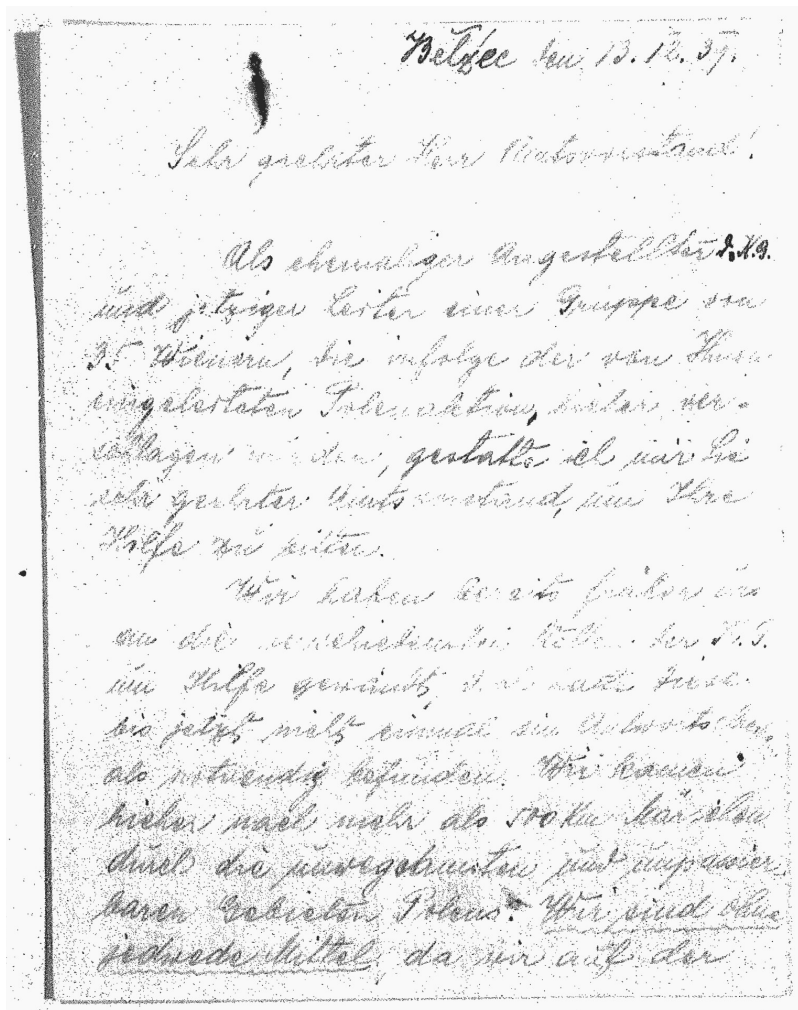 Bełżec den 13.12.39.
Sehr geehrter Herr Amtsvorstand!
Als ehemaliger Angestellter d. K.G.
und jetziger Leiter einer Gruppe von
35 Wienern, die infolge der von Ihnen
eingeleiteten Polenaktion, hieher ver-
schlagen wurden, gestatte ich mir Sie
sehr geehrter Amtsvorstand, um Ihre
Hilfe zu bitten.
Wir haben bereits früher uns
an die verschiedensten Stellen der K.G.
um Hilfe gewandt, doch hat diese
bis jetzt nicht einmal ein
als notwendig befunden. Wir kamen
hieher nach mehr als 500 Km Märschen
durch die ungewohnten und unpassier-
baren Gebieten Polens. Wir sind ohne
jedwede Mittel, da wir auf der